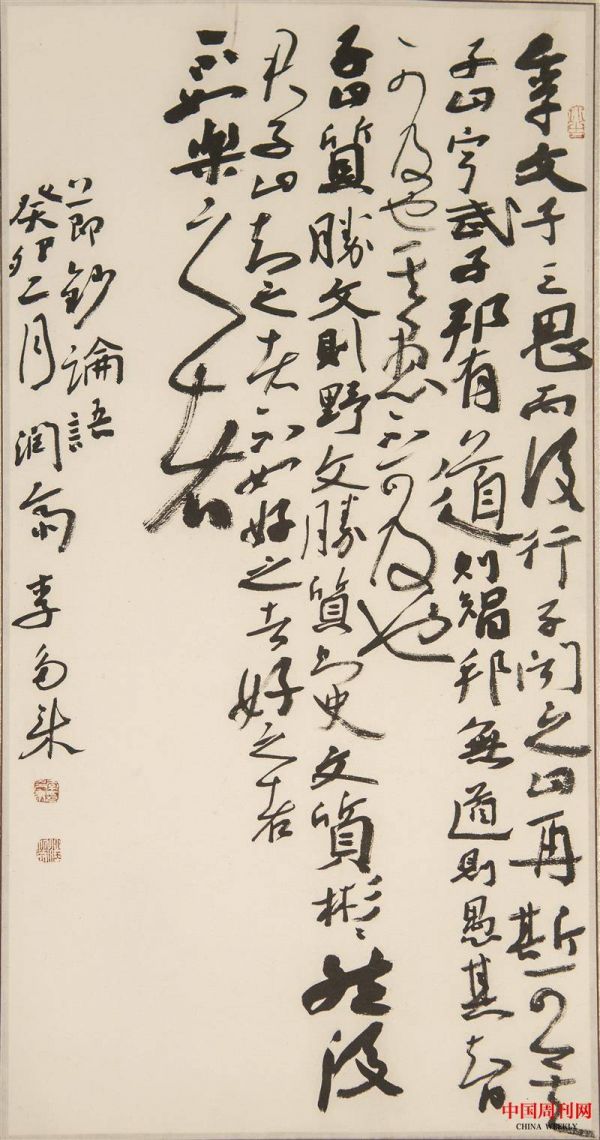 季文子三思而後行子聞之曰再斯可矣
子曰寧武子邦有道則智邦無道則愚其智
可及也其愚不可及也
子曰質勝文則野文勝質則史文質彬彬然後
君子曰知之者不如好之者好之者
不如樂之者
節鈔論語
癸卯二月潤李
中国周刊网
CHINA WEEKLY